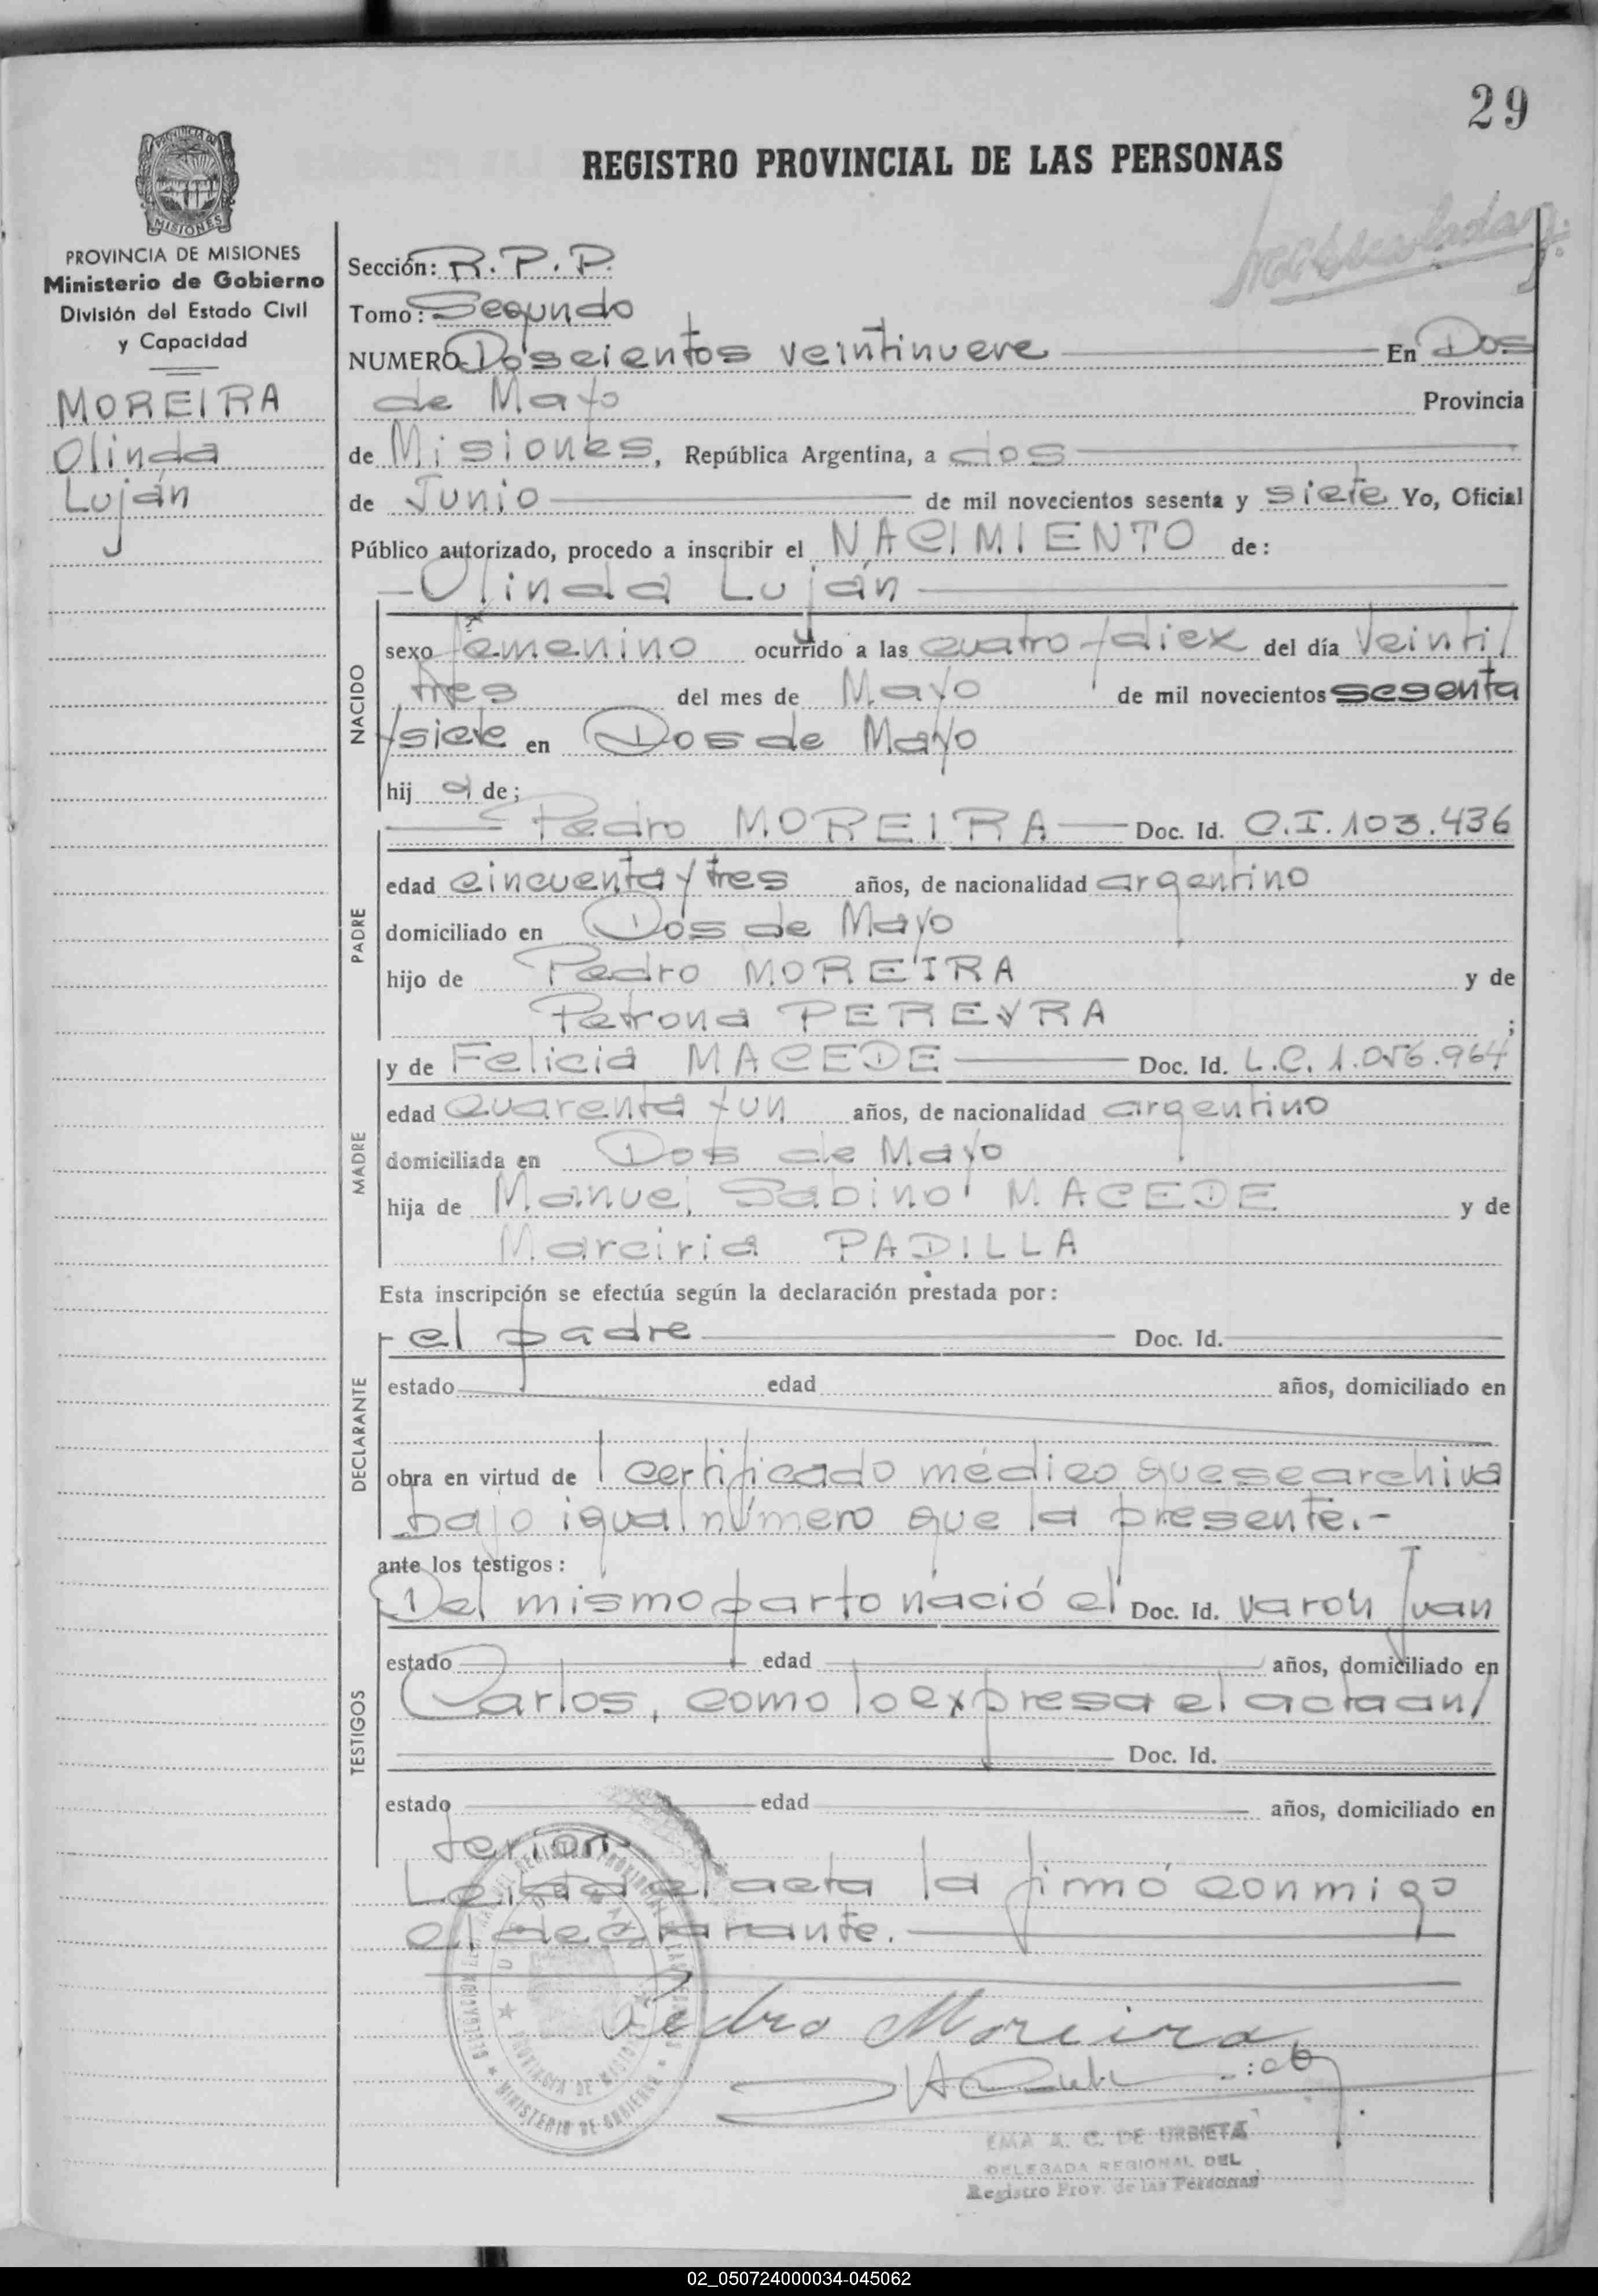 29
REGISTRO PROVINCIAL DE LAS PERSONAS
MISIONES
PROVINCIA DE MISIONES
Ministerio de Gobierno
División del Estado Civil
y Capacidad
MOREIRA
Olinda
Luján
Sección: R.P.P.
Tomo: Segundo
NUMERO Doscientos veintinueve En Dos
de Mayo Provincia
de Misiones, República Argentina, a dos
de Junio de mil novecientos sesenta y siete Yo, Oficial
Público autorizado, procedo a inscribir el NACIMIENTO de:
Olinda Luján
NACIDO
sexo femenino ocurrido a las cuatro y diez del día Veinti/
tres del mes de Mayo de mil novecientos sesenta
y siete en Dos de Mayo
hij a de;
Pedro MOREIRA Doc. Id. C.I. 103.436
PADRE
edad cincuenta y tres años, de nacionalidad argentino
domiciliado en Dos de Mayo
hijo de Pedro MOREIRA y de
Petrona PEREYRA ;
y de Felicia MACEDE Doc. Id. L.C. 1.056.964
MADRE
edad cuarenta y un años, de nacionalidad argentino
domiciliada en Dos de Mayo
hija de Manuel Sabino MACEDE y de
Marciria PADILLA
Esta inscripción se efectúa según la declaración prestada por:
el padre Doc. Id.
DECLARANTE
estado edad años, domiciliado en
obra en virtud de certificado médico que se archiva
bajo igual número que la presente.-
ante los testigos:
Del mismo parto nació el Doc. Id. varon Juan
TESTIGOS
estado edad años, domiciliado en
Carlos, como lo expresa el acta an/
Doc. Id.
estado edad años, domiciliado en
terior.
Leída el acta la firmó conmigo
el declarante.
Pedro Moreira
EMA A. C. DE URBIETA
DELEGADA REGIONAL DEL
Registro Prov. de las Personas
MINISTERIO DE GOBIERNO
PROVINCIA DE MISIONES
02_050724000034-045062